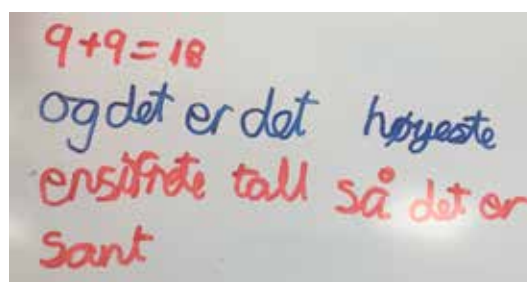 9+9=18
og det er det høyeste
ensifrete tall så det er
sant